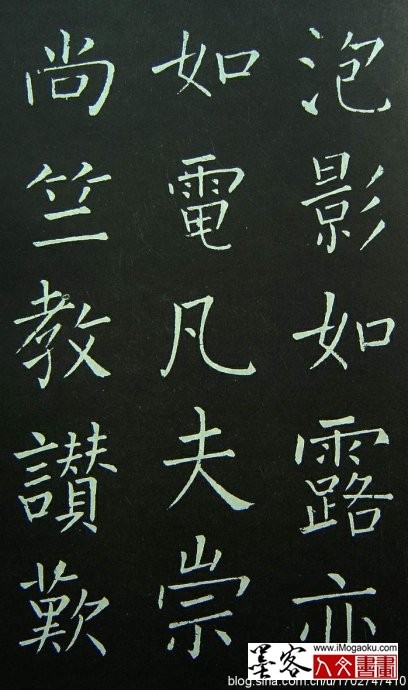 泡影如露亦
如電凡夫崇
尚竺教讃歎
墨客人文書畫
www.iMogaoku.com
blog.sina.com.cn/u/1702747410